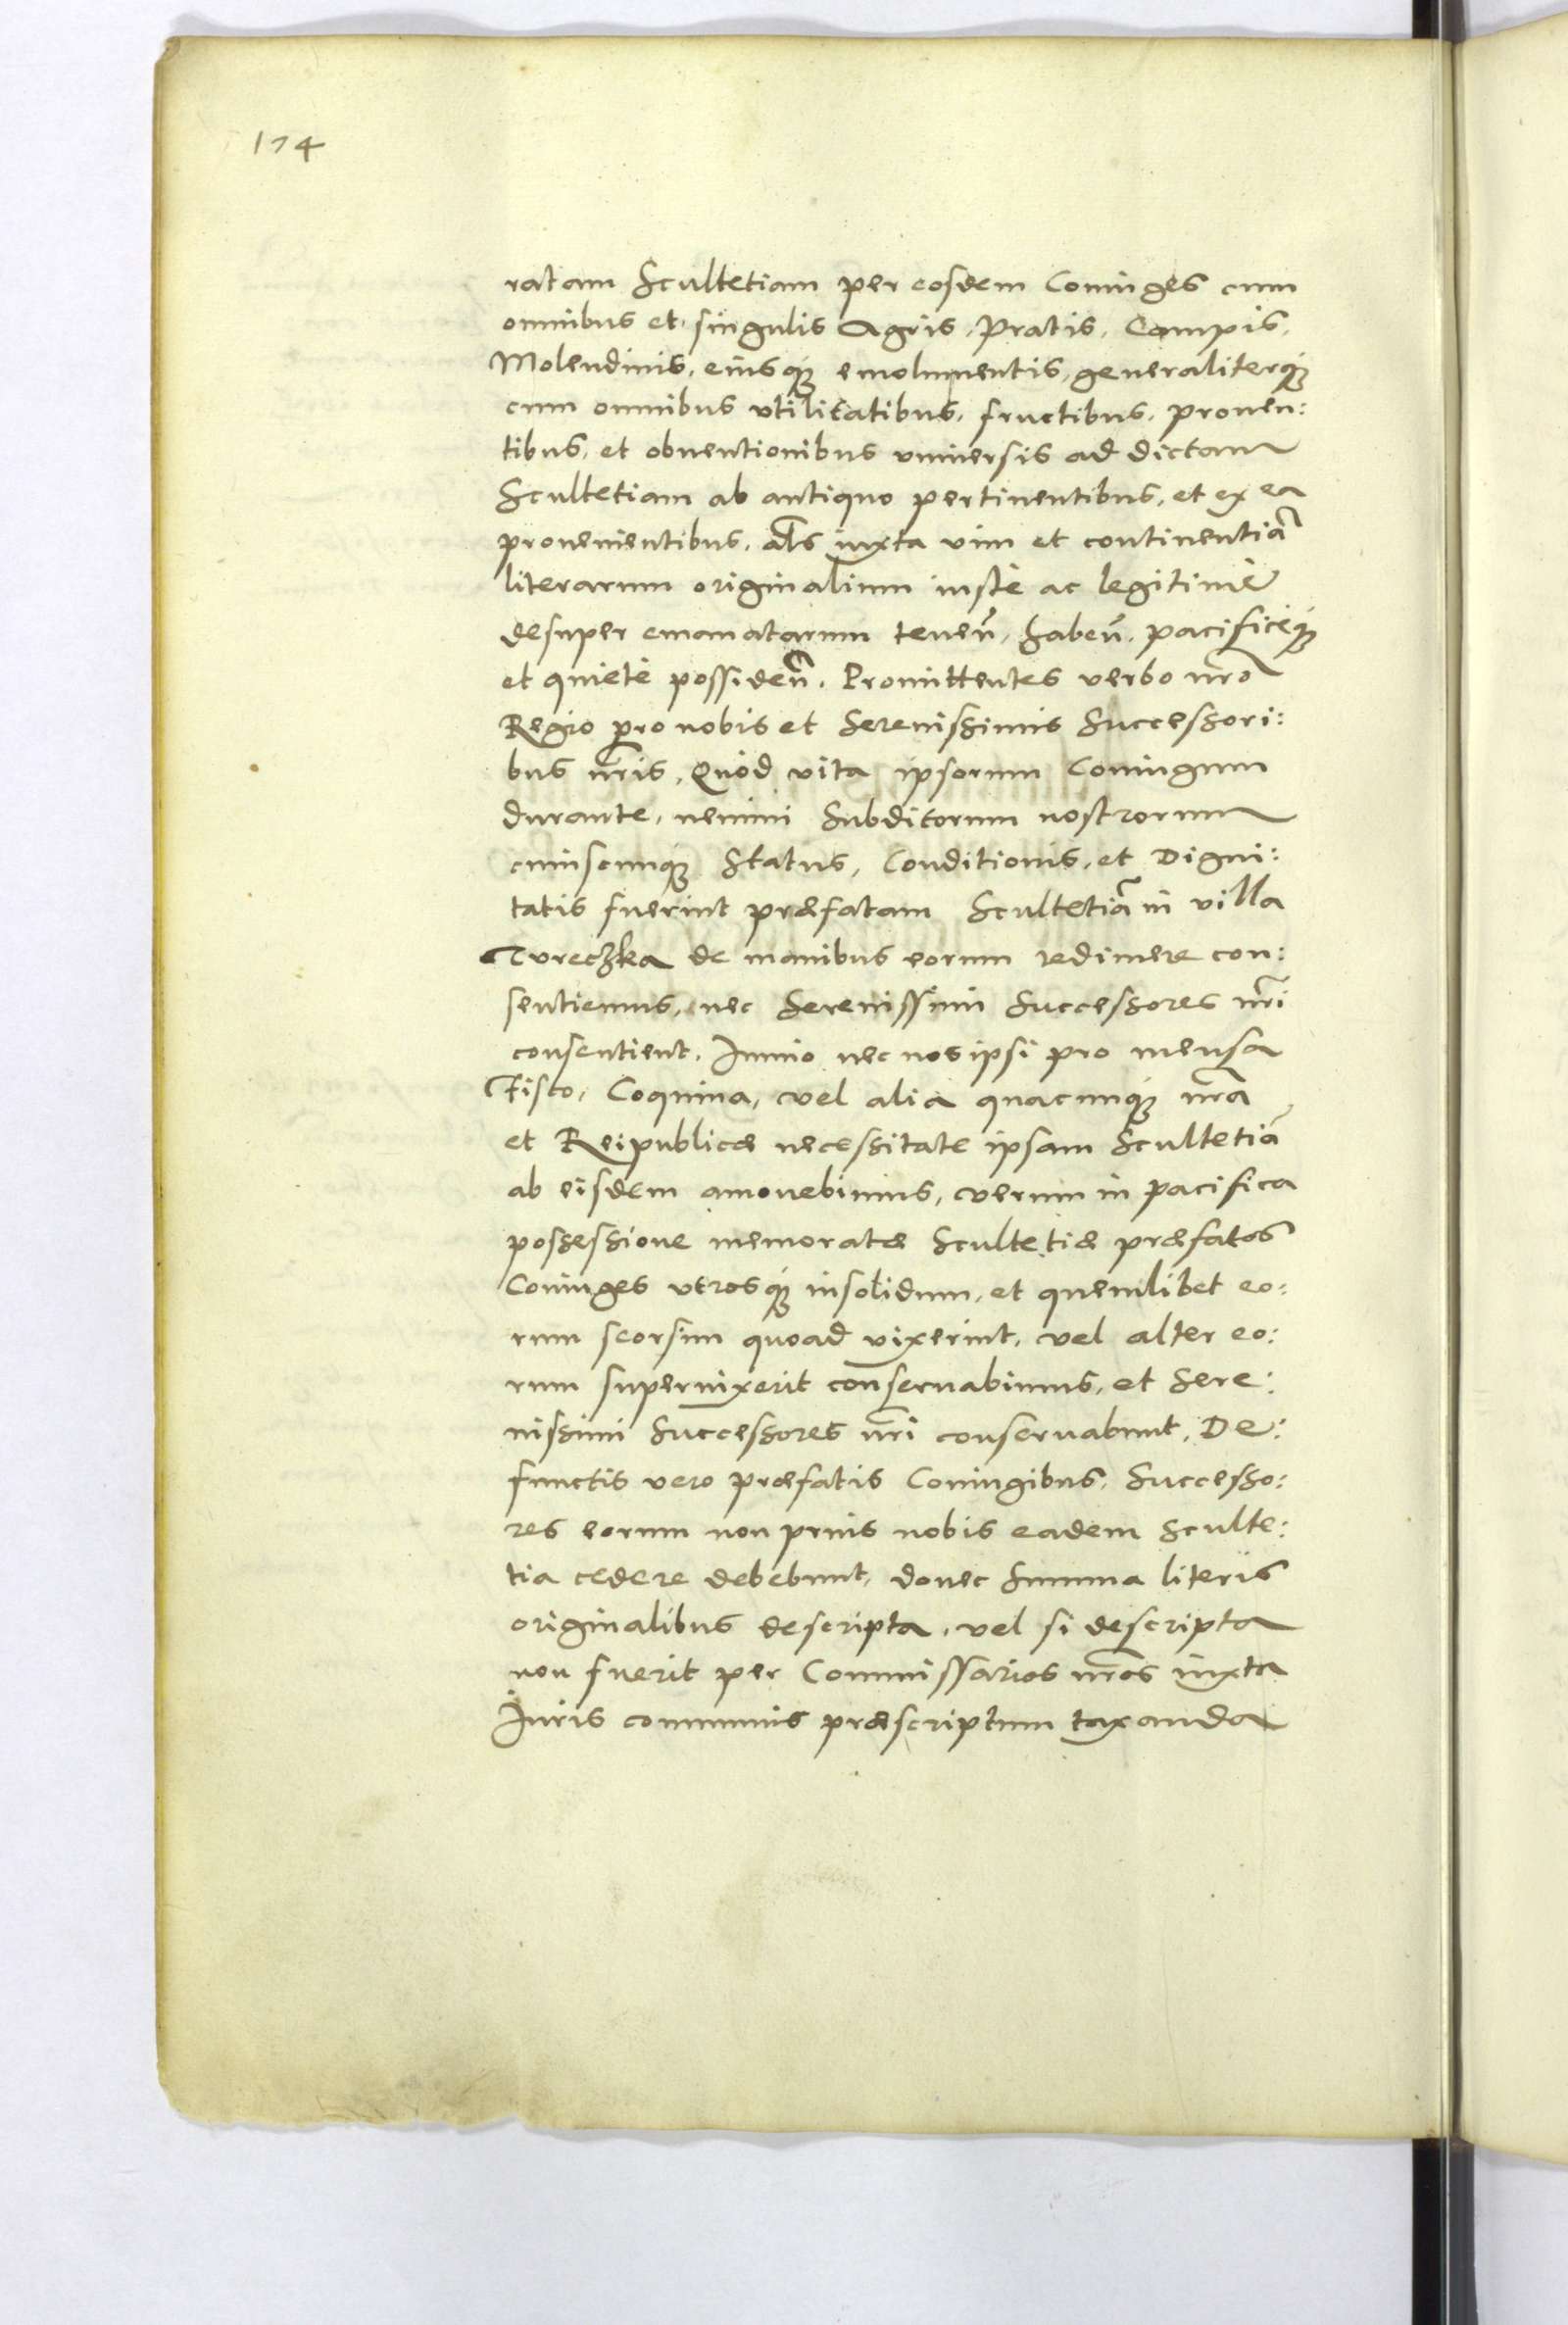 174
ratam Scultetiam per eosdem Coniuges cum
omnibus et singulis Agris, Pratis, Campis,
Molendinis, eiusq́ue emolumentis, generaliterq́ue
cum omnibus vtilitatibus, fructibus, prouen:
tibus, et obuentionibus vniuersis ad dictam
Scultetiam ab antiquo pertinentibus, et ex ea
prouenientibus, als̃ iuxta vim et continentiã
literarum originalium iustè ac legitimè
desuper emanatarum teneñ, habeñ, pacificèq́ue
et quietè possideñ. Promittentes verbo nr̃o
Regio pro nobis et Serenissimis Successori:
bus nr̃is, Quòd vita ipsorum Coniugum
durante, nemini Subditorum nostrorum
cuiuscunq́ue Status, Conditionis, et Digni:
tatis fuerint præfatam Scultetiã in villa
Tureczka de manibus eorum redimere con:
sentiemus, nec Serenissimi Successores nr̃i
consentient. Immo nec nos ipsi pro mensa
Fisco, Coquina, vel alia quacunq́ue nr̃a
et Reipublicæ necessitate ipsam Scultetiã
ab eisdem amouebimus, verum in pacifica
possessione memoratæ Scultetiæ præfatos
Coniuges vtrosq́ue insolidum, et quemlibet eo:
rum seorsim quoad vixerint, vel alter eo:
rum superuixerit conseruabimus, et Sere:
nissimi Successores nr̃i conseruabunt. De:
functis vero præfatis Coniugibus, Successo:
res eorum non prius nobis eadem Sculte:
tia cedere debebunt, donec Summa literis
originalibus descripta, vel si descripta
non fuerit per Commissarios nr̃os iuxta
Iuris communis præscriptum taxanda